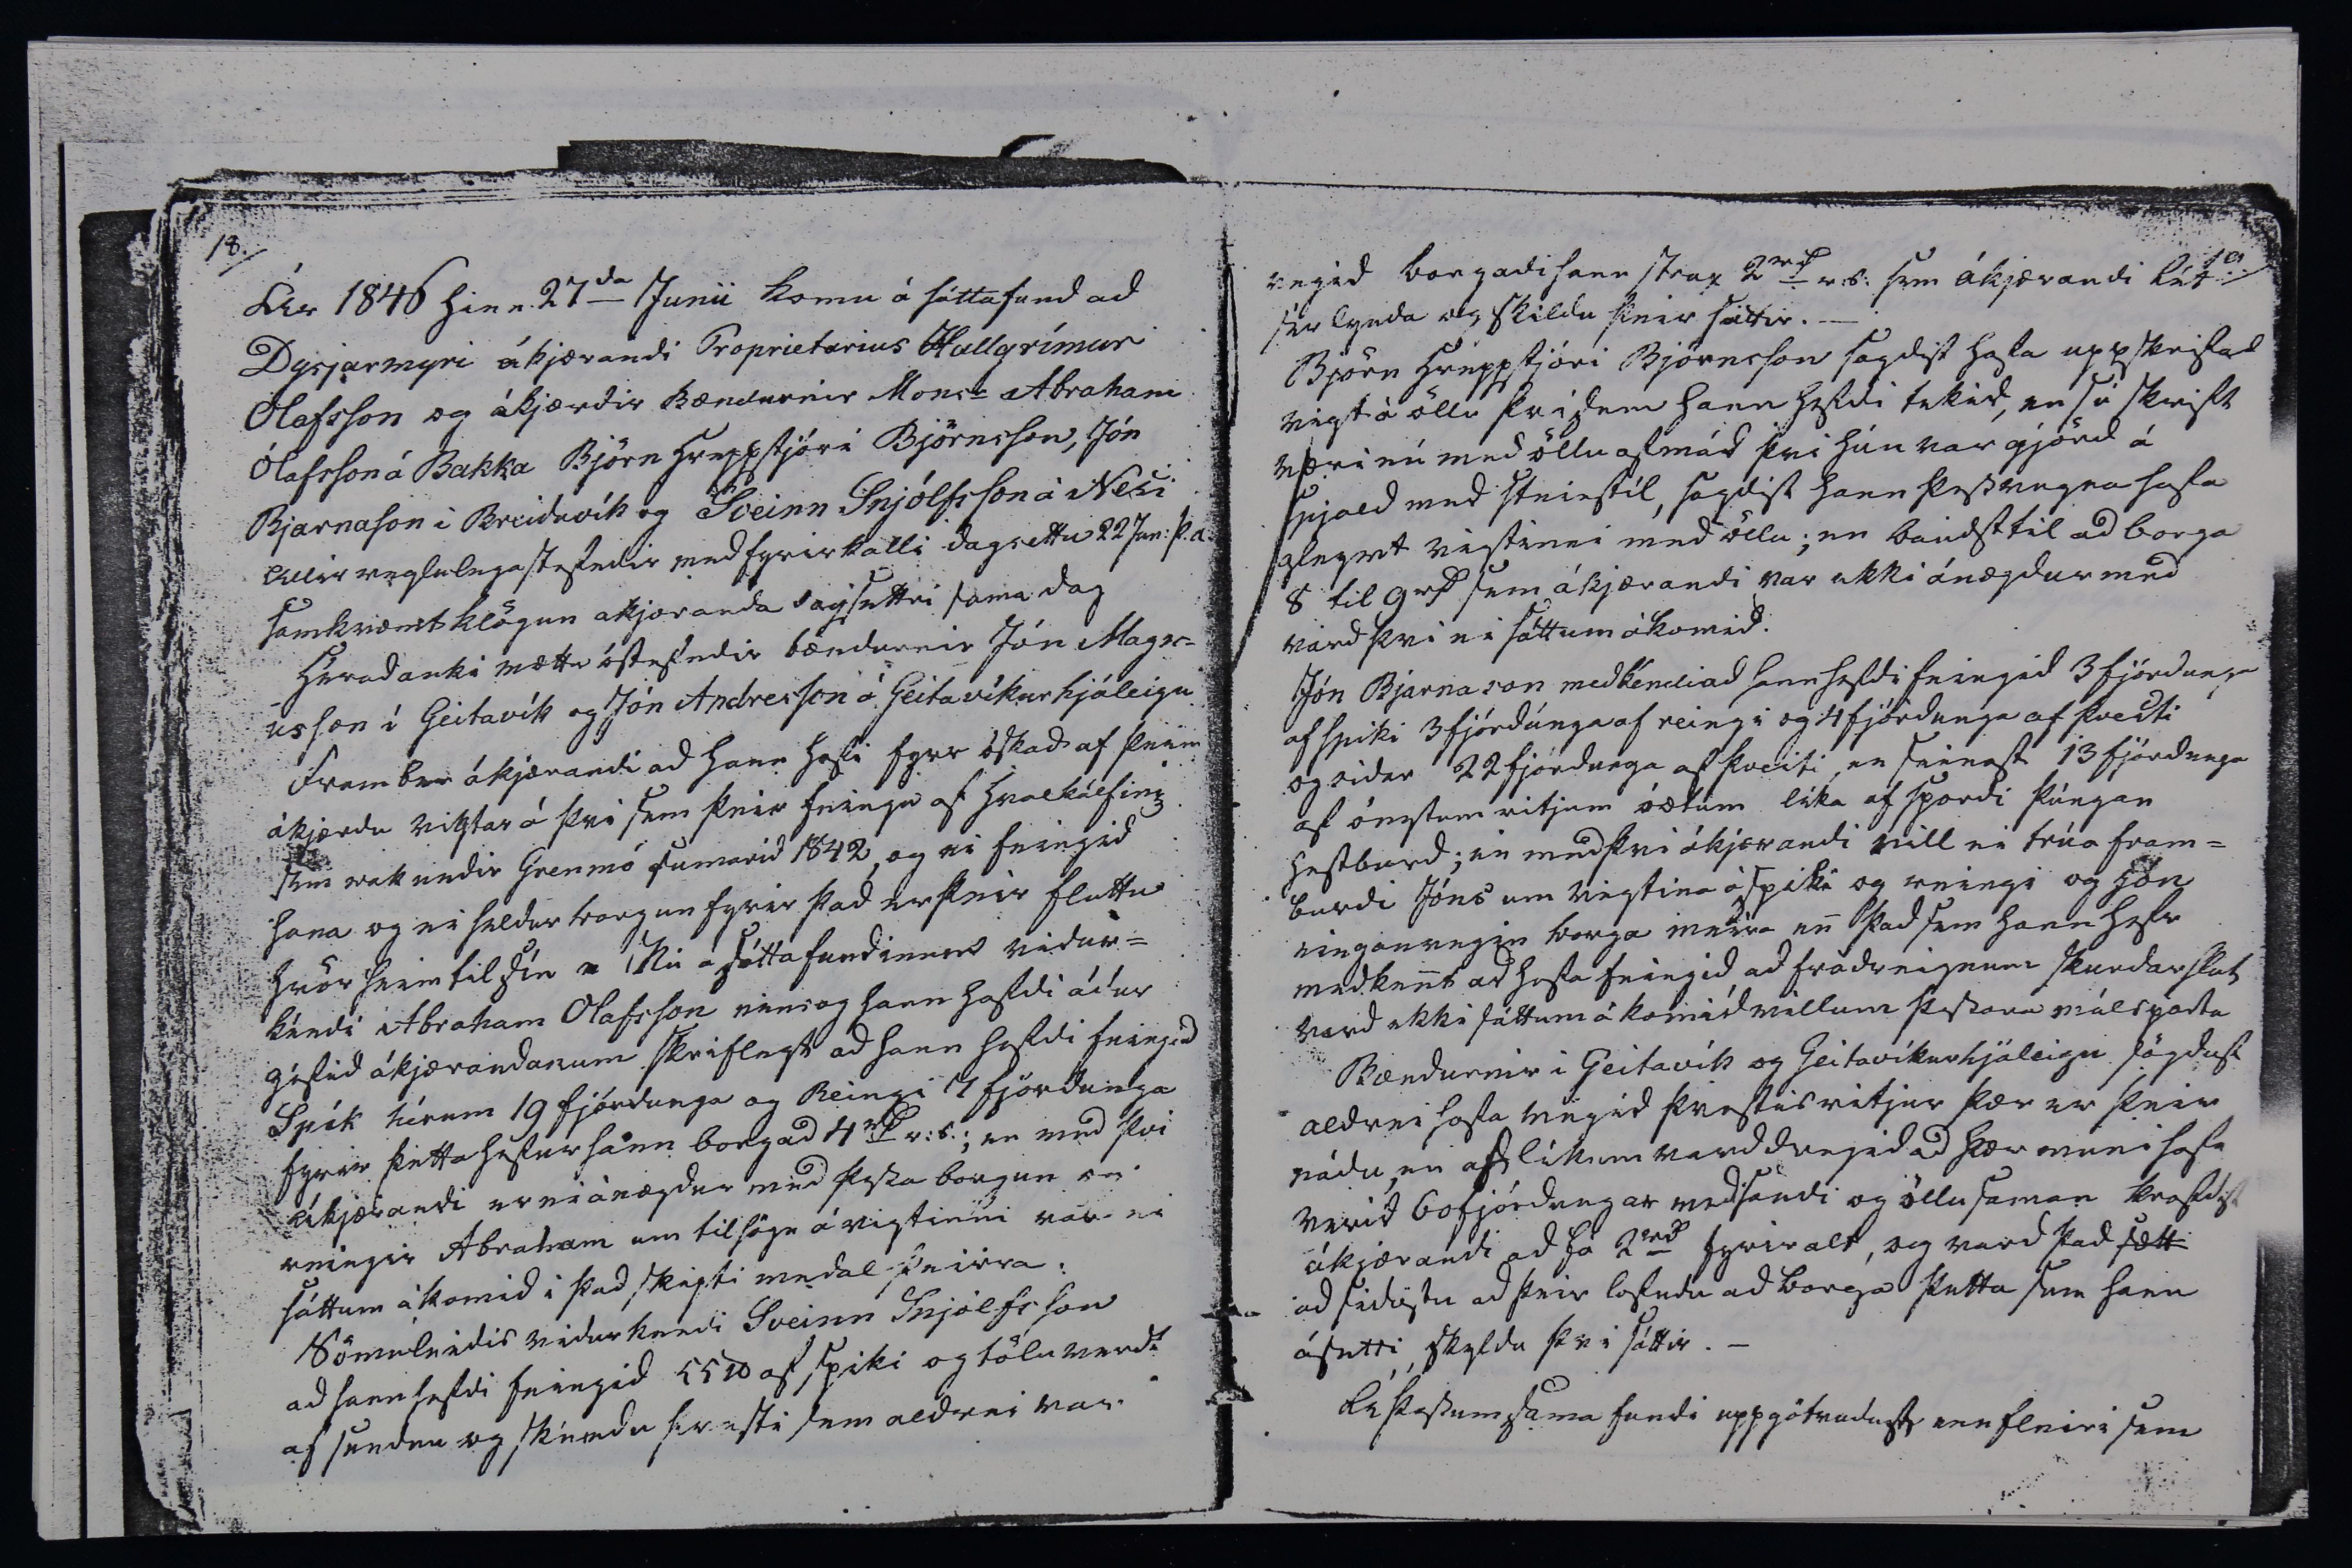 18.
Ár 1846 hinn 27da Junii komu á sáttafund ad
Dysjarmyri ákjærandi Proprietarius Hallgrímur
Olafsson og ákjærdir Bændurnir Monsr Abraham
Ólafsson á Bakka Björn Hreppstjóri Björnsson, Jón
Bjarnason i Breiduvík og Sveinn Snjólfsson á Nesi
allir reglulega stefndir med fyrirkalli dagsettu 22 Jun: þ.á.
samkvæmt klögun akjæranda dagsettri sama dag
Hèradauki mættu óstefndir bændurnir Jón Magn-
ússon i Geitavík og Jón Andresson á Geitavíkurhjáleigu
Fram ber ákjærandi ad hann hafi fyrr óskad af þeim
ákjærdu vigtar á þvi sem þeir feingu af Hvalkálfinum
sem rak undir Grenmó sumarid 1842, og ei feingid
hana og ei heldur borgun fyrir þad er þeir fluttu
hvör heim til sín. Nú á sáttafundinum vidur-
kéndi Abraham Olafsson eins og hann hafdi ádur
géfid ákjærandanum skriflegt ad hann hafdi feingid
Spik hérum 19 fjórdunga og Reingi 7 fjórdunga
fyrir þetta hefur hann borgad 4rd r: s.; en med þvi
ákjærandi er ei ánægdur med þessa borgun né
reingir Abraham um tilsögn á vigtinni var ei
sáttum ákomid i þad skipti medal þeirra.
Sömuleidis vidurkendi Sveinn Snjólfsson
ad hann hefdi feingid 55 ℔ af spiki og töluverdt
af sundru og skémdu þvesti sem aldrei var
19
vegid borgadi hann strax 2rd r: s: sem ákjærandi lét
sér lynda og skildu þeir sáttir. —
Björn Hreppstjóri Björnsson sagdist hafa uppskrifad
vigt á öllu þvi sem hann hefdi tekid, en sú skrift
væri nú med öllu afmád þvi hún var gjörd á
spjald med steinstíl, sagdist hann þessvegna hafa
gleymt vigtinni med öllu; en baudst til ad borga
8 til 9rd sem ákjærandi var ekki ánægdur med
vard þvi ei sáttum ákomid.
Jón Bjarnason medkéndi ad hann hefdi feingid 3 fjórdunga
af spiki 3 fjórdúnga af reingi og 4 fjórdunga af þvesti
og sidar 22 fjórdunga af þvesti, en seinast 13 fjórdunga
af ónytum ritjum óætum líka af spordi þúngan
hestburd; en med þvi ákjærandi vill ei trúa fram-
burdi Jóns um vigtina á spiki og reingi og Jón
einganvegin borga meira enn þad sem hann hefr
medkennt ad hafa feingid, ad frádreignum
vard ekki sáttum ákomid millum þessara málsparta
Bændurnir i Geitavík og Geitavíkurhjáleigu sögdust
aldrei hafa vegid þvestisritjur þær er þeir
nádu, en af líkum vard dregid ad þær muni hafa
verid 6 fjórdungar med sandi og öllu saman krafdist
ákjærandi ad fá 2rd fyrir alt, og vard þad sætt
ad sidustu ad þeir lofudu ad borga þetta sem hann
ásetti, skyldu þvi sáttir. —
Á þessum sama fundi uppgötvudust enn fleiri sem